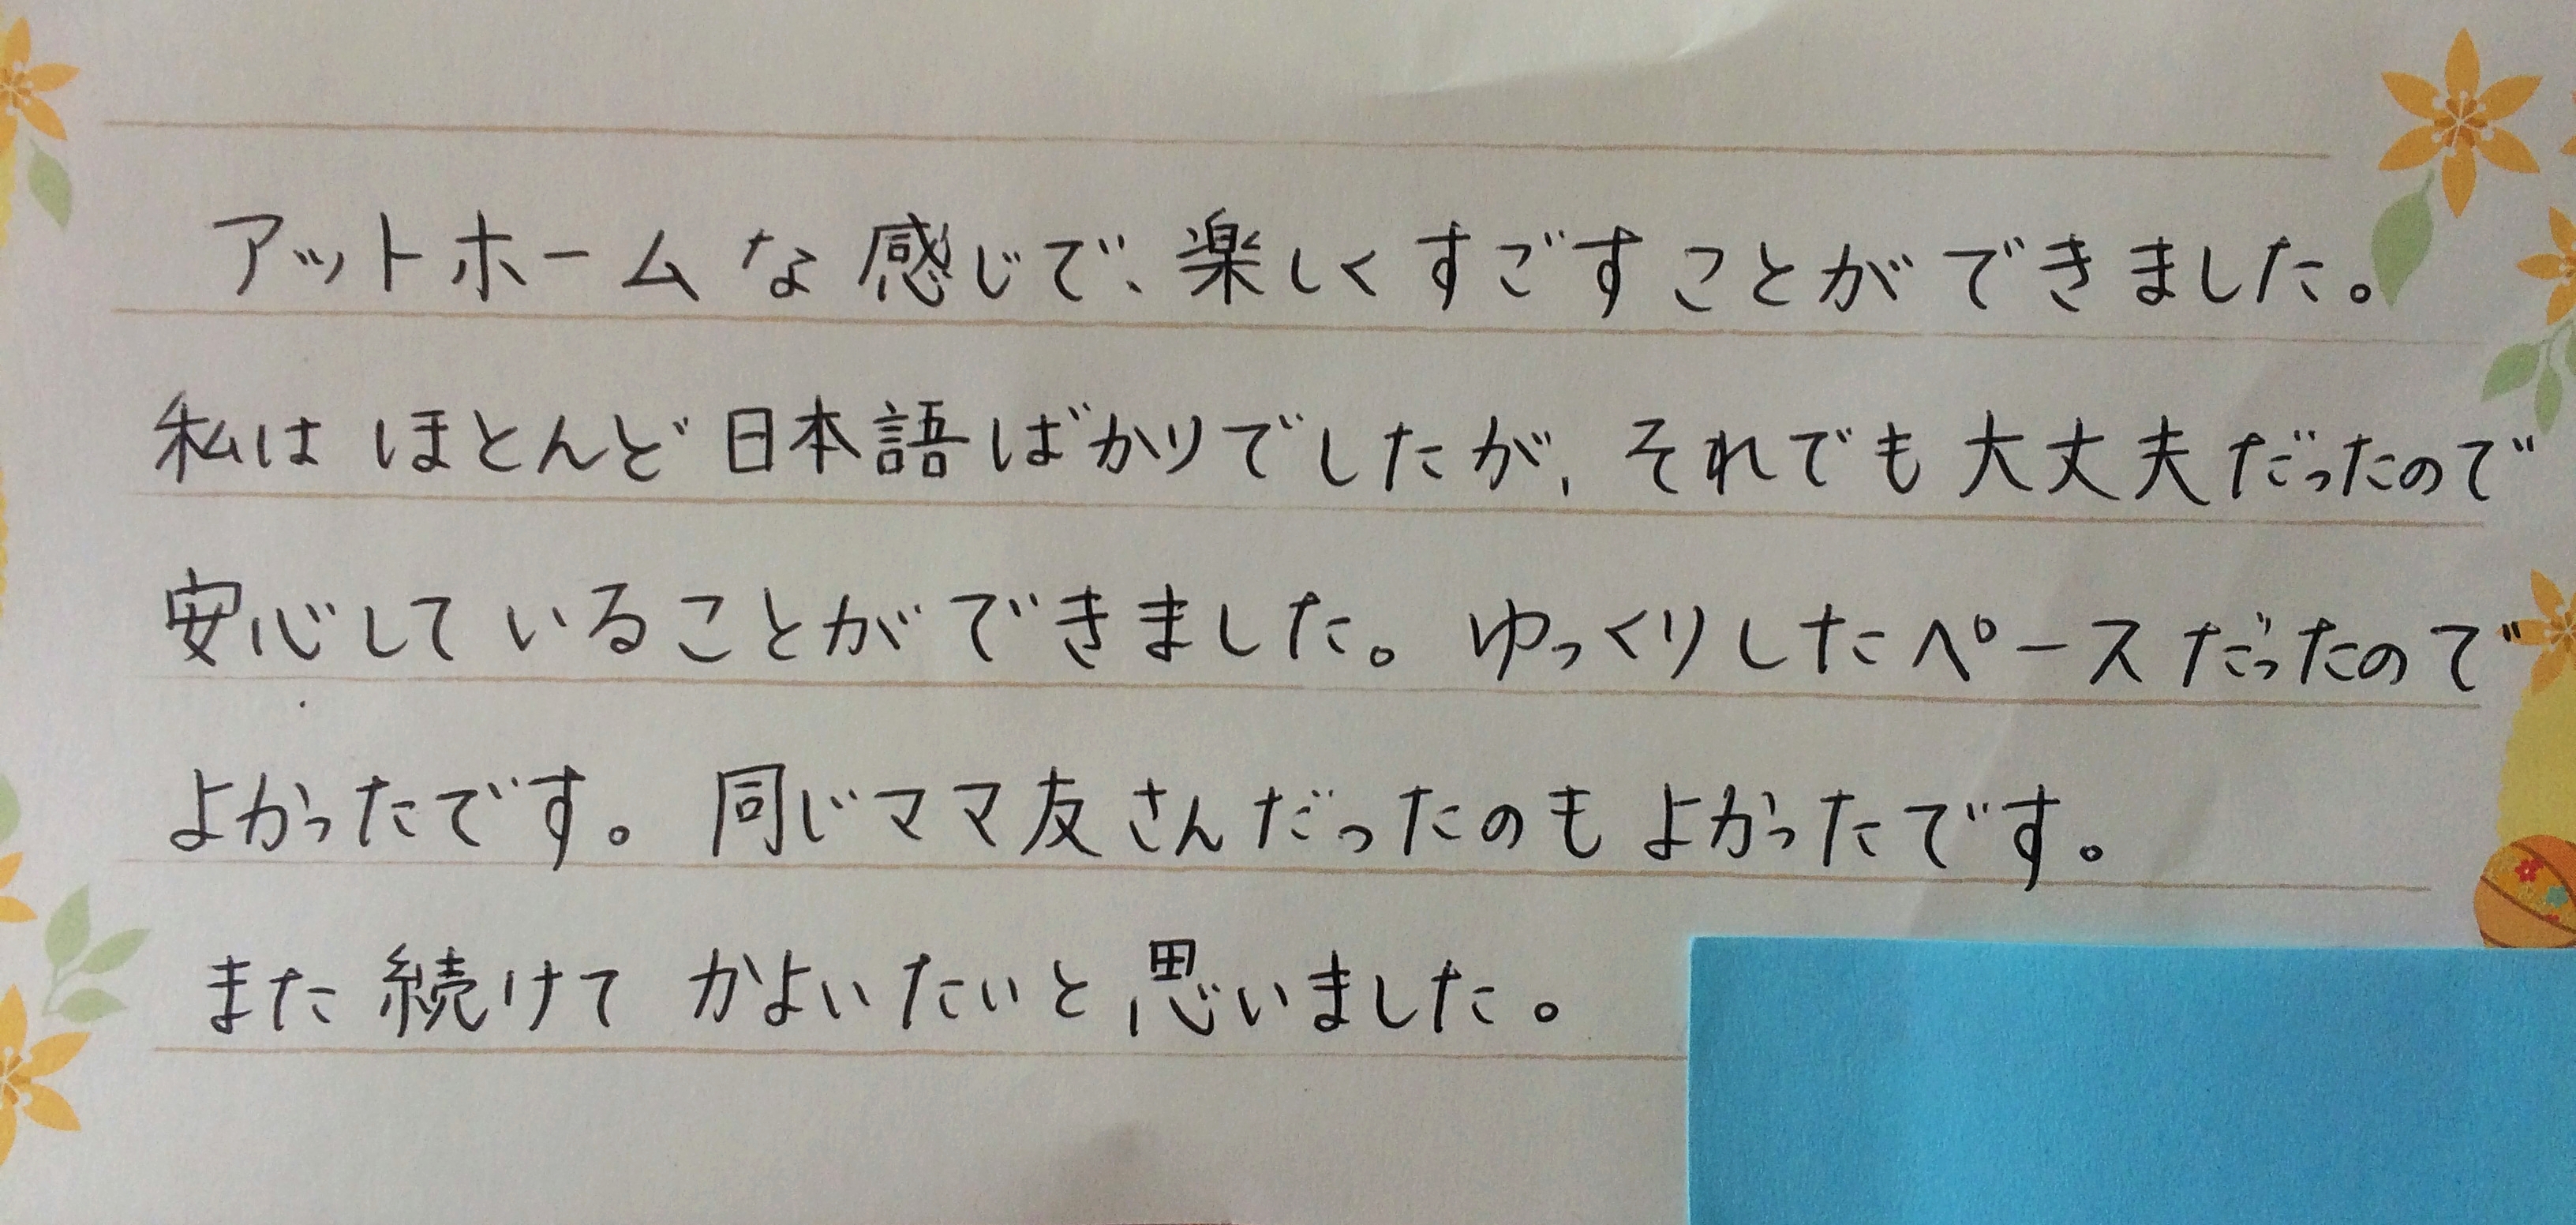 アットホームな感じで、楽しくすごすことができました。
私はほとんど日本語ばかりでしたが、それでも大丈夫だったので
安心していることができました。ゆっくりしたペースだったので
よかったです。同じママ友さんだったのもよかったです。
また続けてかよいたいと思いました。